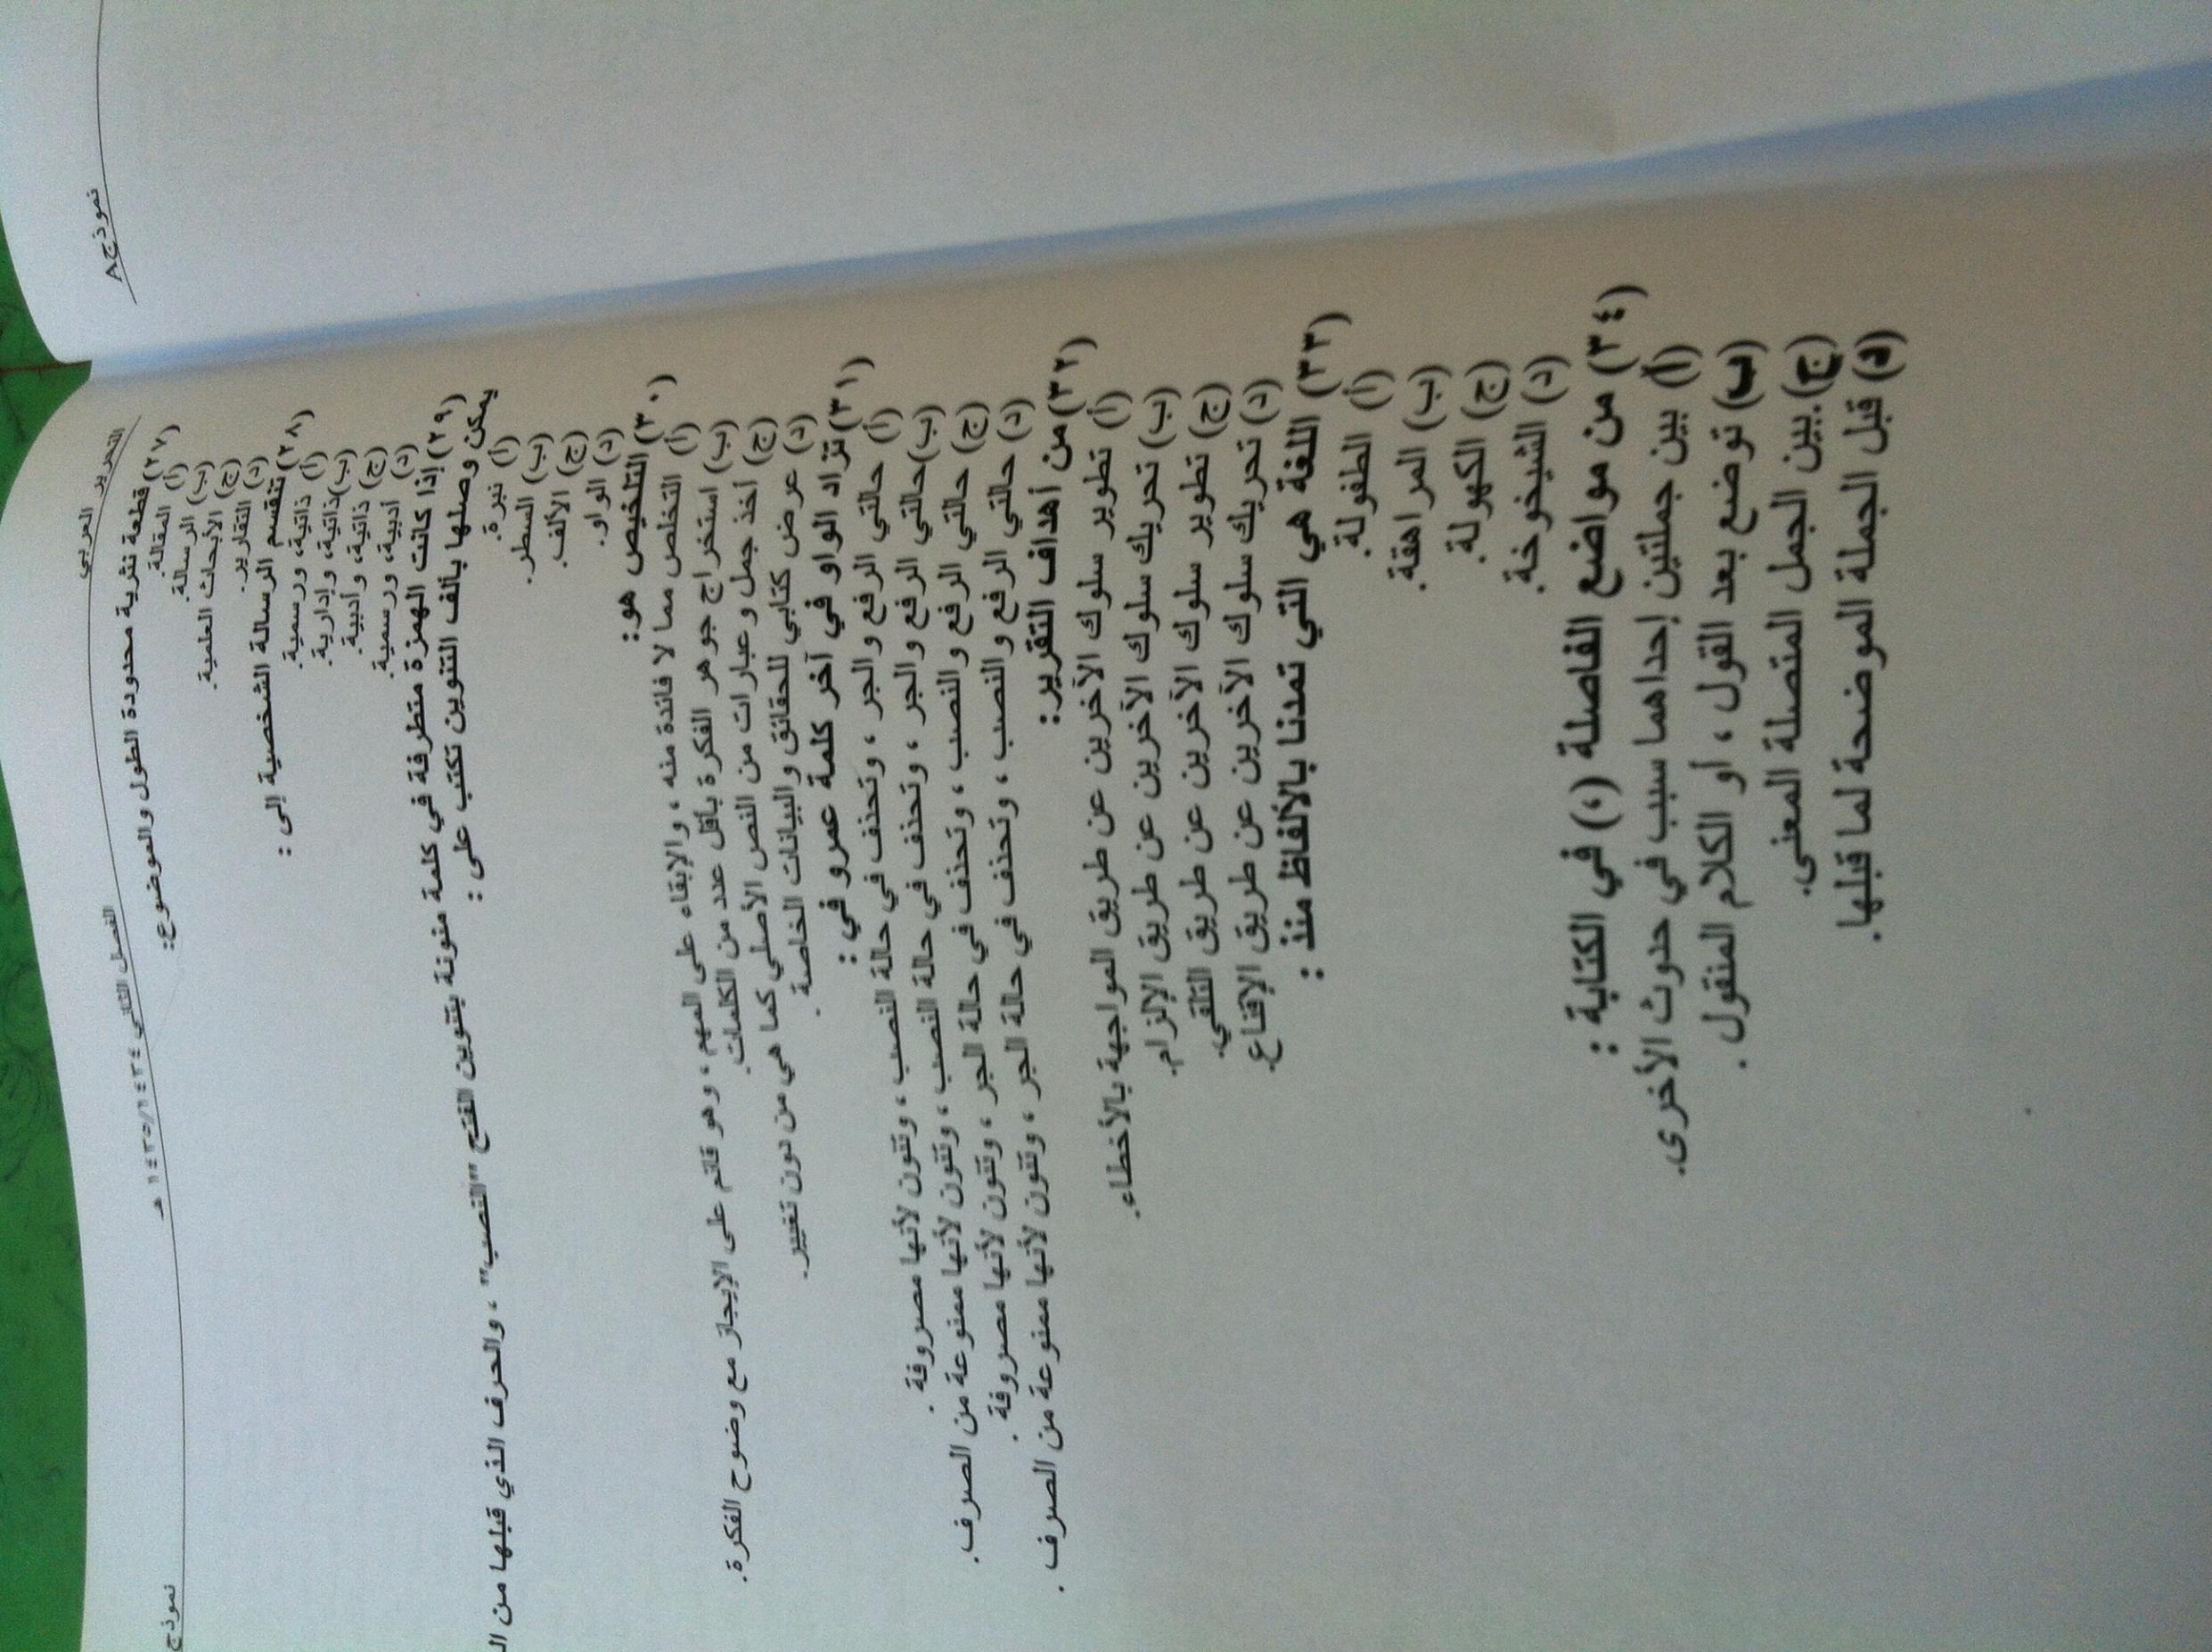 نموذج A
التحرير العربي الفصل الثاني ١٤٣٤/١٤٣٥ هـ نموذج
(٢٧) قطعة نثرية محدودة الطول والموضوع:
(أ) المقالة.
(ب) الرسالة.
(ج) الأبحاث العلمية.
(د) التقارير.
(٢٨) تنقسم الرسالة الشخصية إلى :
(أ) ذاتية، ورسمية.
(ب) ذاتية، وإدارية.
(ج) ذاتية، وأدبية.
(د) أدبية، ورسمية.
(٢٩) إذا كانت الهمزة متطرفة في كلمة منونة بتنوين الفتح "النصب" ، والحرف الذي قبلها من
يمكن وصلها بألف التنوين تكتب على :
(أ) نبرة.
(ب) السطر.
(ج) الألف.
(د) الواو.
(٣٠) التلخيص هو:
(أ) التخلص مما لا فائدة منه ، والإبقاء على المهم ، وهو قائم على الإيجاز مع وضوح الفكرة.
(ب) استخراج جوهر الفكرة بأقل عدد من الكلمات.
(ج) أخذ جمل وعبارات من النص الأصلي كما هي من دون تغيير.
(د) عرض كتابي للحقائق والبيانات الخاصة .
(٣١) تزاد الواو في آخر كلمة عمرو في :
(أ) حالتي الرفع والجر ، وتحذف في حالة النصب ، وتنون لأنها مصروفة .
(ب) حالتي الرفع والجر ، وتحذف في حالة النصب ، وتنون لأنها ممنوعة من الصرف.
(ج) حالتي الرفع والنصب ، وتحذف في حالة الجر ، وتنون لأنها مصروفة .
(د) حالتي الرفع والنصب ، وتحذف في حالة الجر ، وتنون لأنها ممنوعة من الصرف .
(٣٢) من أهداف التقرير:
(أ) تطوير سلوك الآخرين عن طريق المواجهة بالأخطاء.
(ب) تحريك سلوك الآخرين عن طريق الإلزام.
(ج) تطوير سلوك الآخرين عن طريق التلقي.
(د) تحريك سلوك الآخرين عن طريق الإقناع.
(٣٣) اللغة هي التي تمدنا بالألفاظ منذ :
(أ) الطفولة.
(ب) المراهقة.
(ج) الكهولة.
(د) الشيخوخة.
(٣٤) من مواضع الفاصلة (،) في الكتابة :
(أ) بين جملتين إحداهما سبب في حدوث الأخرى.
(ب) توضع بعد القول ، أو الكلام المنقول .
(ج) بين الجمل المتصلة المعنى.
(د) قبل الجملة الموضحة لما قبلها.